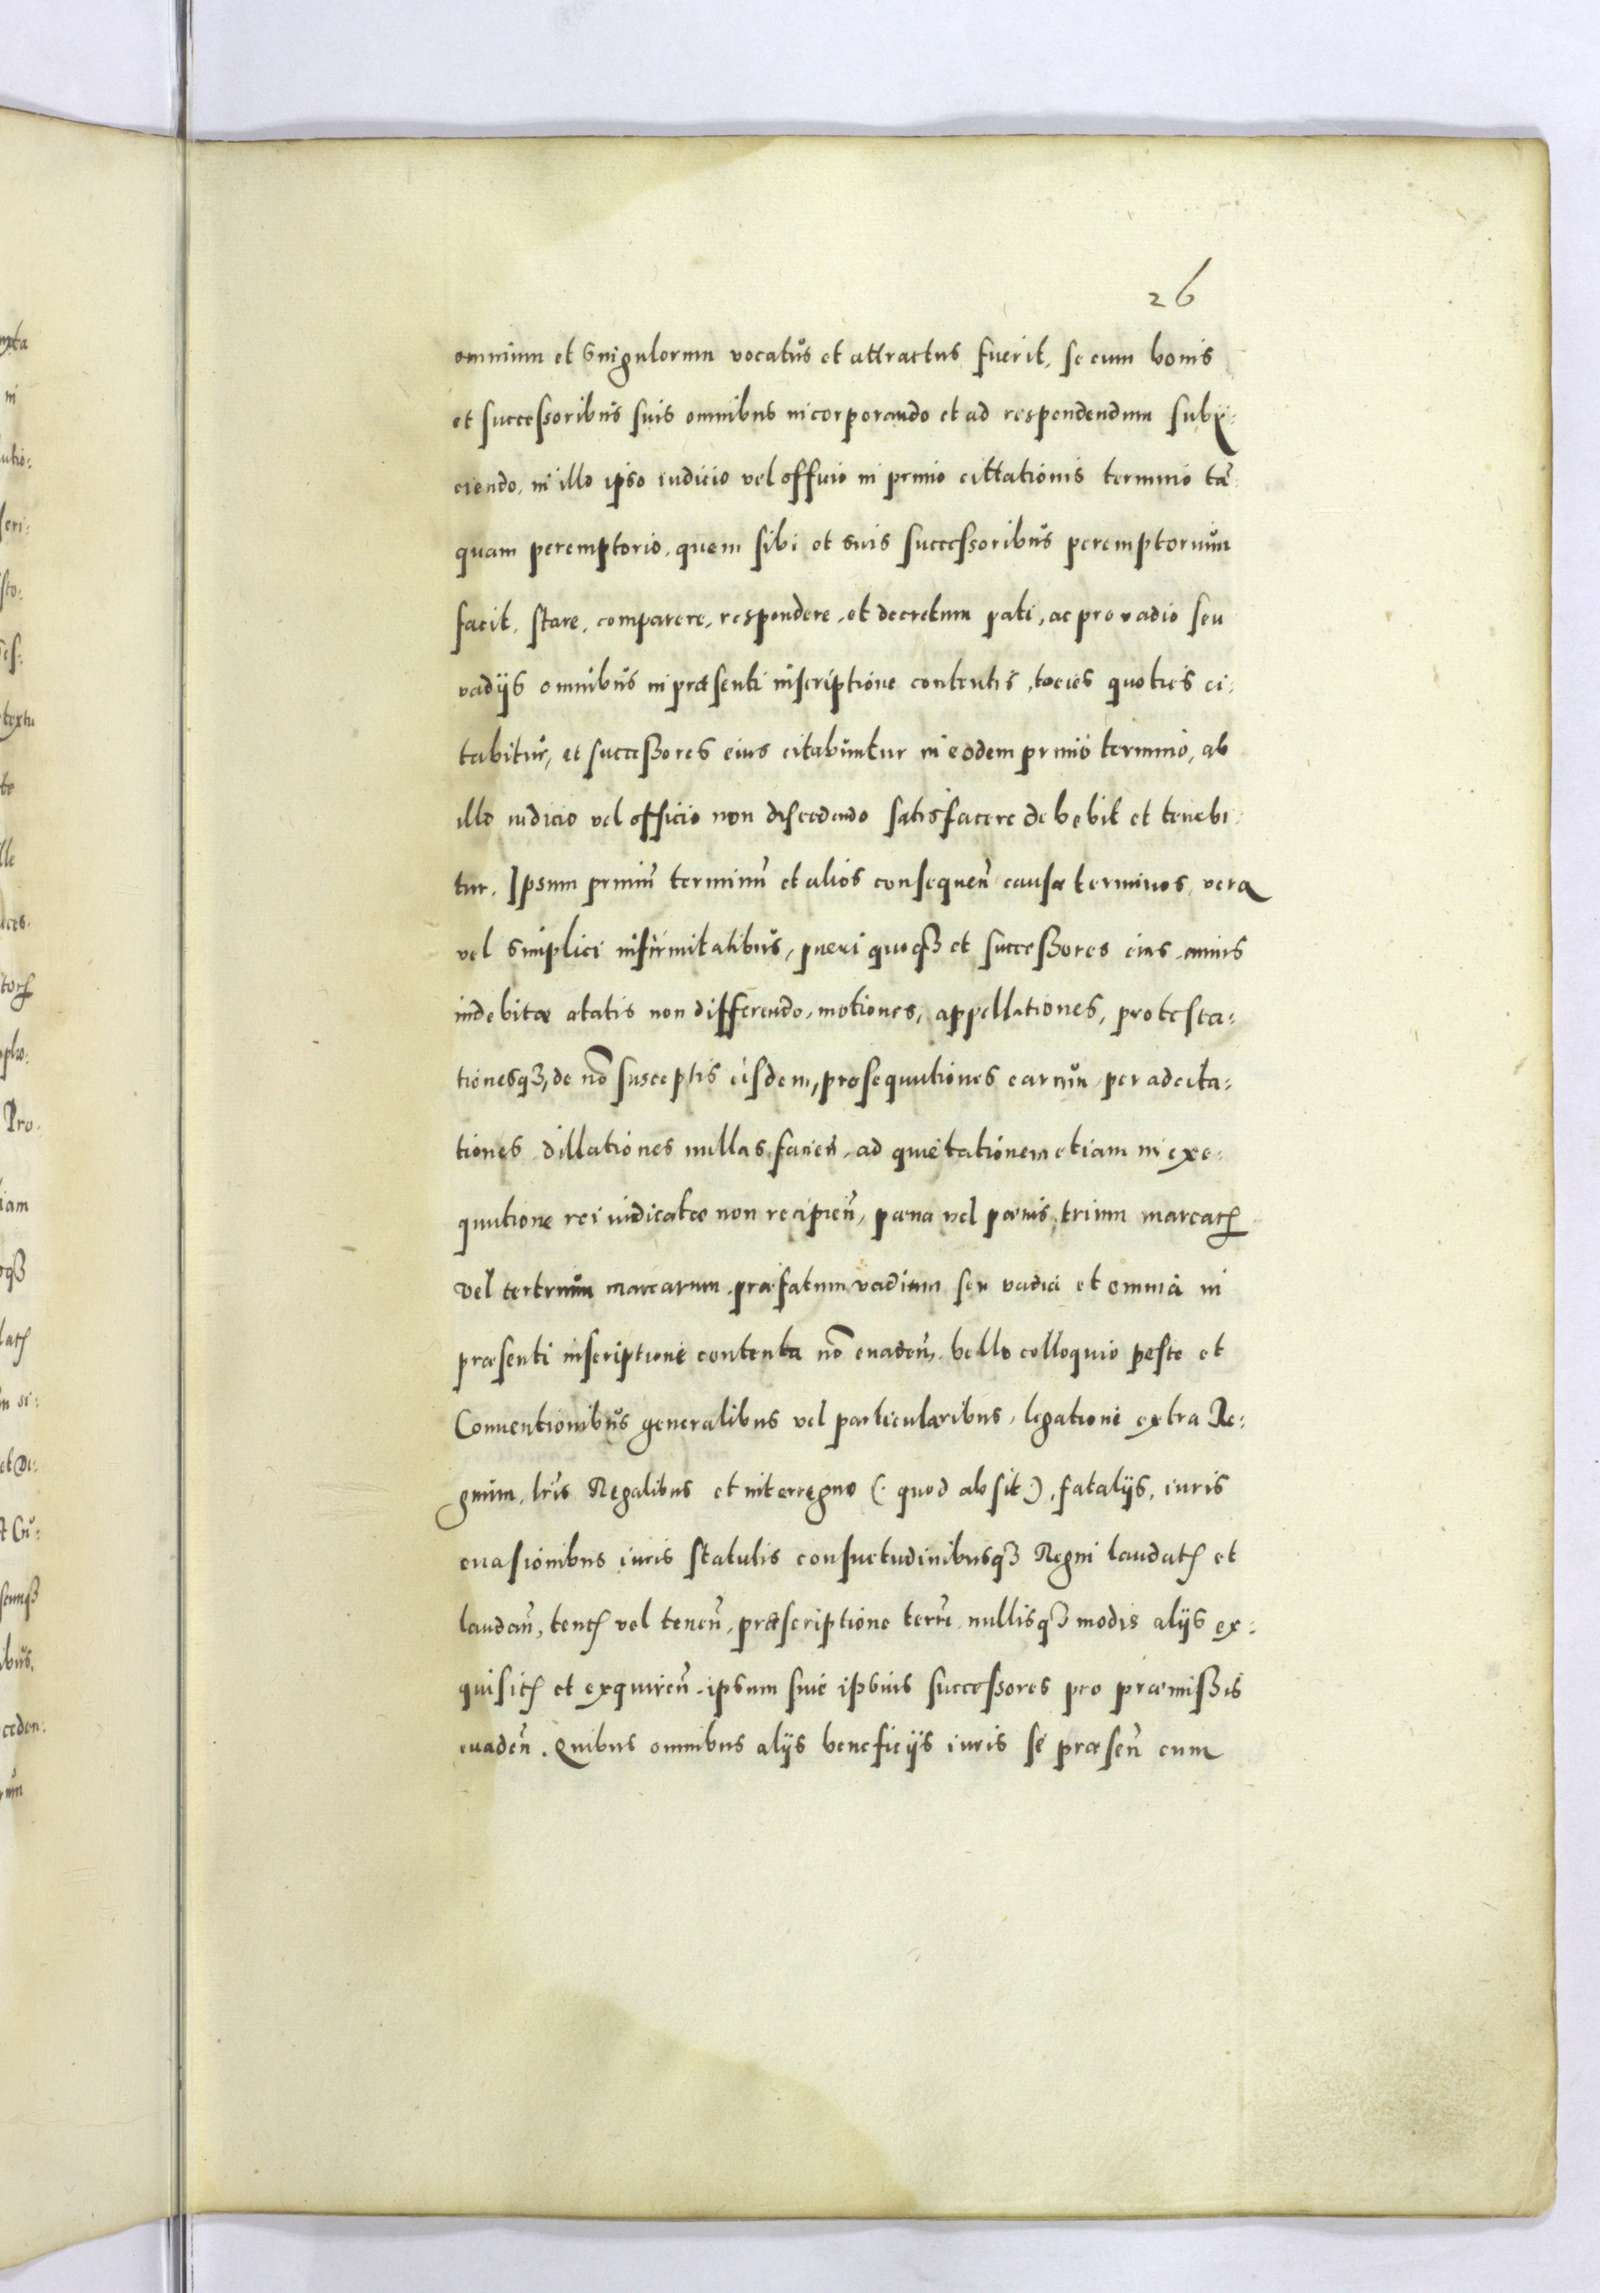 26
omnium et singulorum vocatus et attractus fuerit, se cum bonis
et successoribus suis omnibus incorporando et ad respondendum subÿ-
ciendo, in illo ipso iudicio vel officio in primo cittationis termino tã
quam peremptorio, quem sibi et suis successoribus peremptorium
facit, stare, comparere, respondere, et decretum pati, ac pro vadio seu
vadÿs omnibus in præsenti inscriptione contentis, tocies quoties ci:
tabitur, et successores eius citabuntur in eodem primo termino, ab
illo iudicio vel officio non discedendo satisfacere debebit et tenebi:
tur. Ipsum primũ terminũ et alios consequeñ causæ terminos, vera
vel simplici infirmitatibus, pueri quoqȝ et successores eius, annis
indebitæ ætatis non differendo, motiones, appellationes, protesta:
tionesqȝ, de nõ susceptis eisdem, prosequutiones earum, per adcita:
tiones, dillationes nullas facieñ, ad quietationem etiam in exe:
quutione rei iudicatæ non recipieñ, pæna vel pænis, trium marcarꝝ
vel tertrium marcarum, præfatum vadium seu vadia et omnia in
præsenti inscriptione contenta nõ evadeñ, bello colloquio peste et
Conventionibus generalibus vel particularibus, legatione extra Re:
gnum, lr̃is Regalibus et interregno (: quod absit :), fatalÿs, iuris
evasionibus iuris statutis consuetudinibusqȝ Regni laudatꝭ et
laudañ, tentꝭ vel teneñ, præscriptione terr̃, nullisqȝ modis alÿs ex:
quisitꝭ et exquireñ, ipsum sive ipsius successores pro præmissis
evadeñ. Quibus omnibus alÿs beneficÿs iuris se præseñ cum